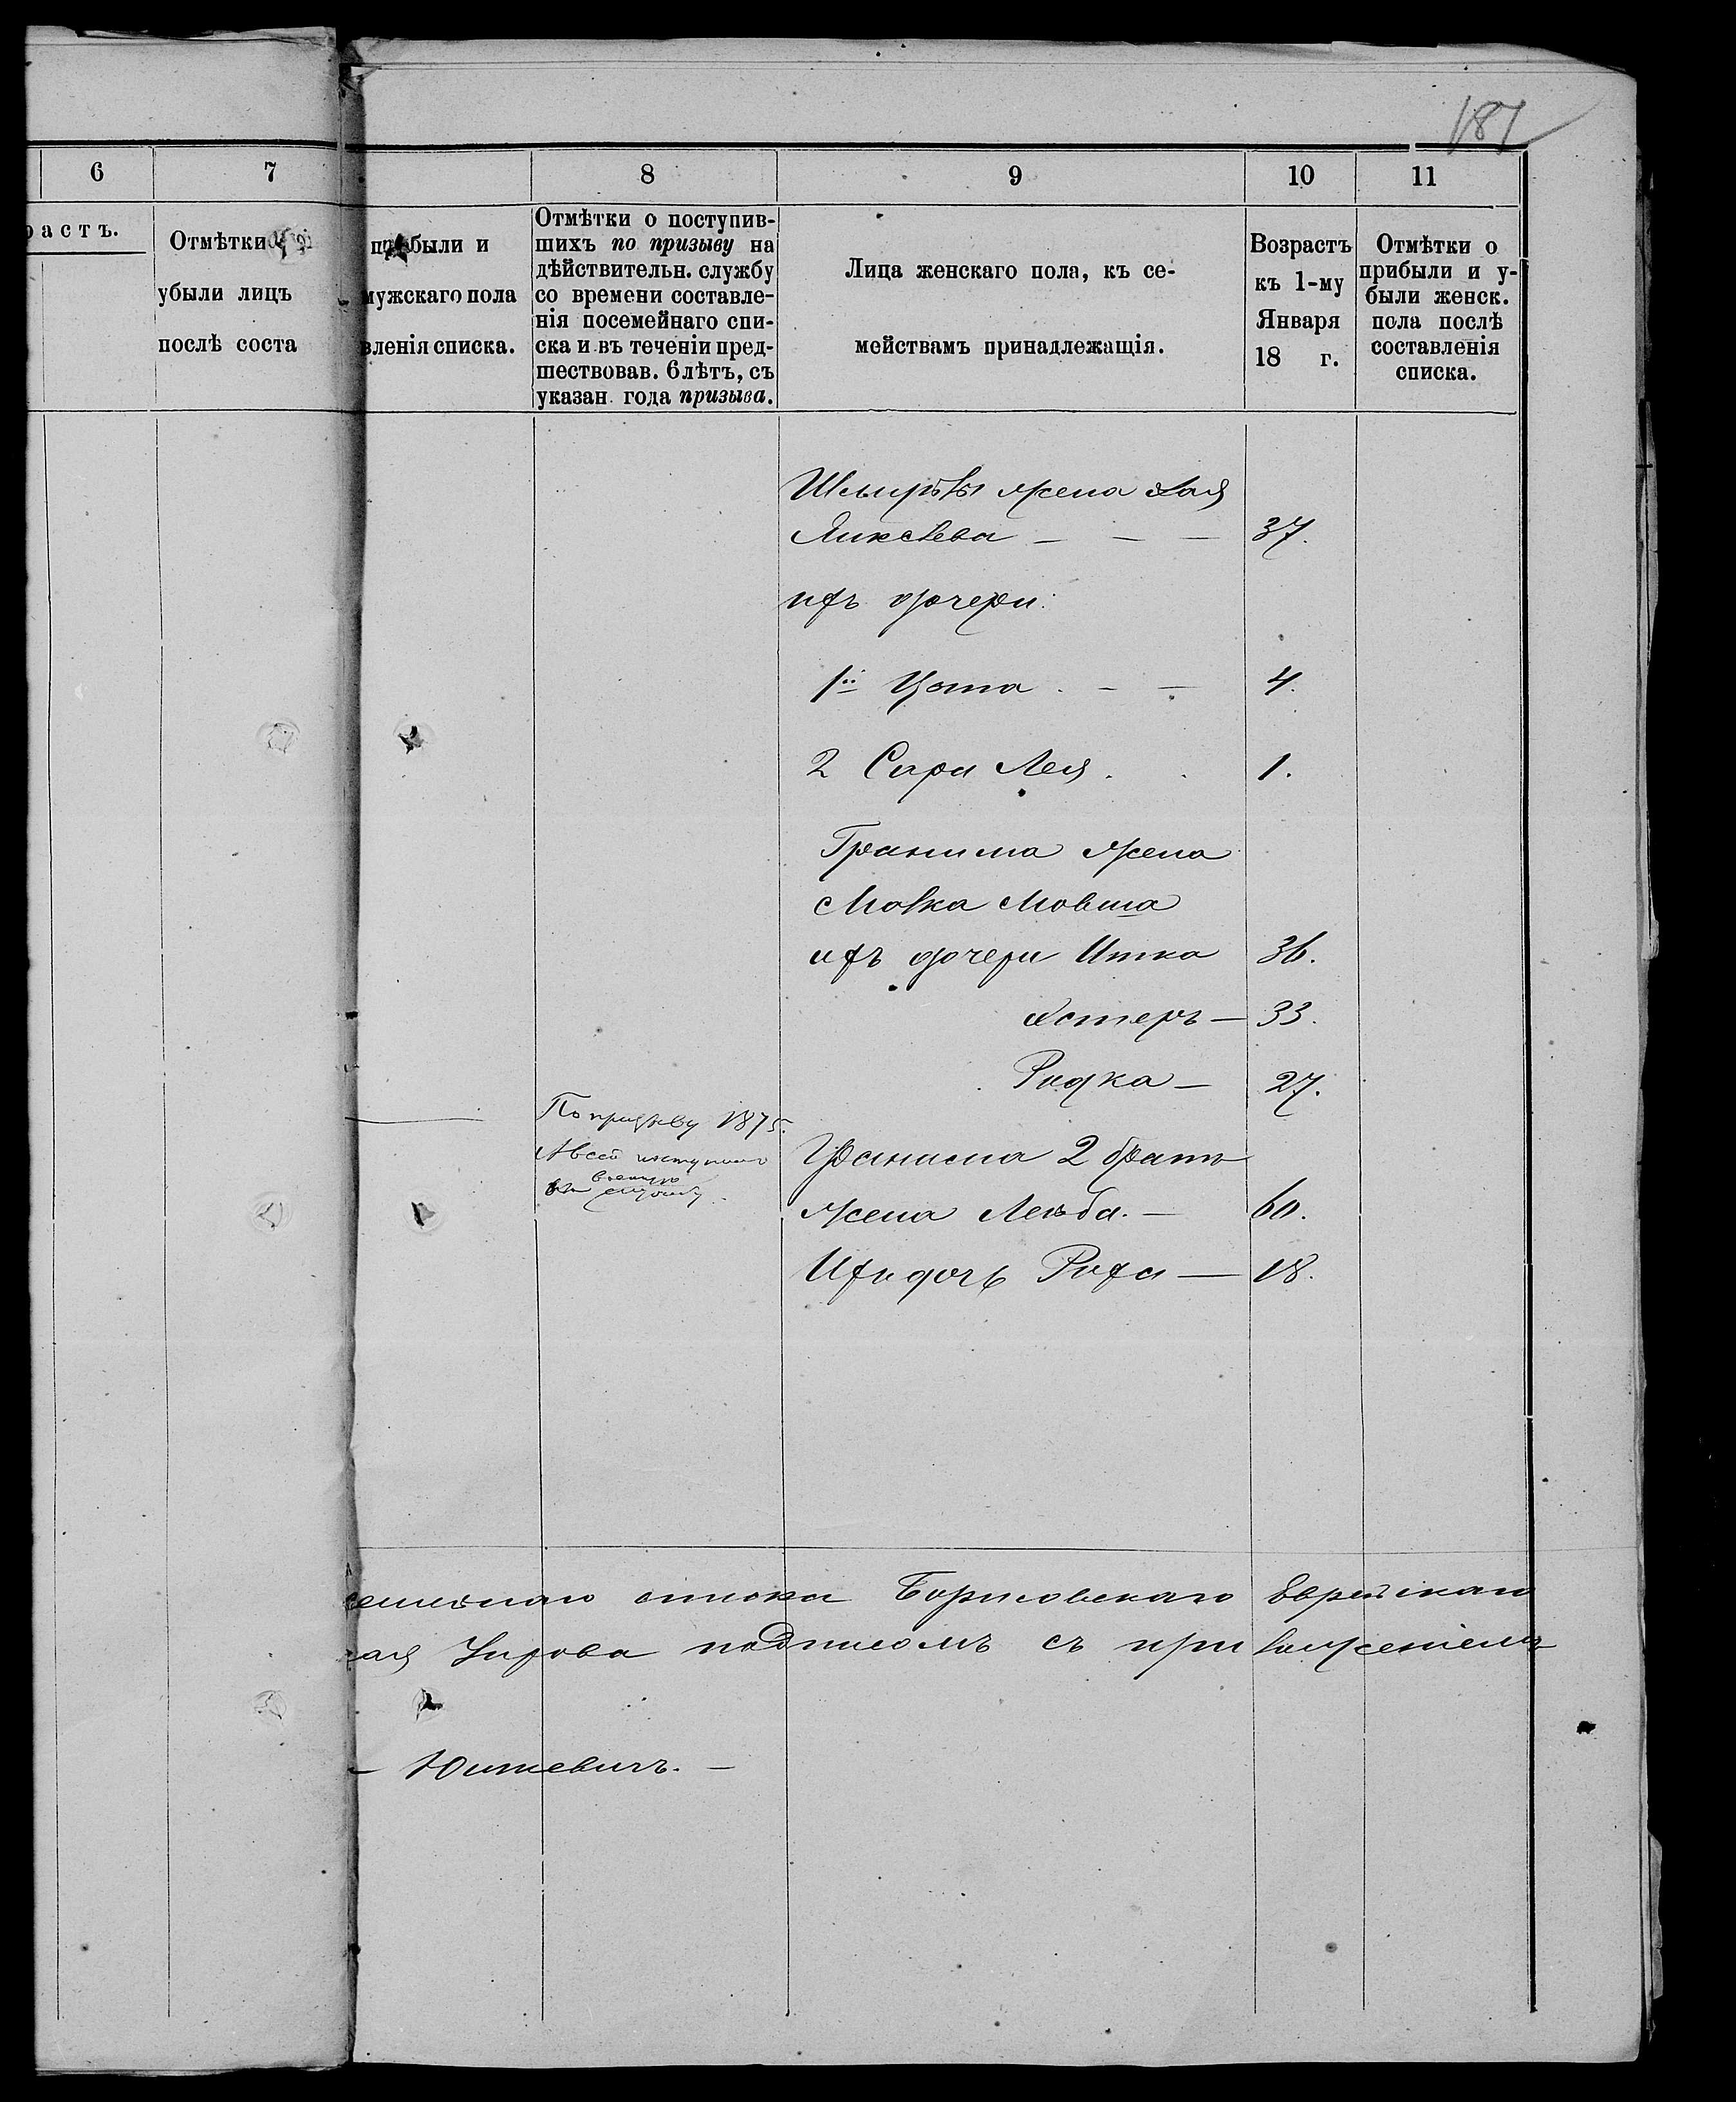 187
6
7
8
9
10
11
растъ.
Отмѣтки о прибыли и
убыли лицъ мужскаго пола
послѣ составленія списка.
Отмѣтки о поступив-
шихъ по призыву на
дѣйствительн. службу
со времени составле-
нія посемейнаго спи-
ска и въ теченіи пред-
шествовав. 6 лѣтъ, съ
указан. года призыва.
Лица женскаго пола, къ се-
мействамъ принадлежащія.
Возрастъ
къ 1-му
Января
18 г.
Отмѣтки о
прибыли и у-
были женск.
пола послѣ
составленія
списка.
жена Хая
37.
ихъ дочери:
1й Цота 4.
2 Сара Лея 1.
жена
Мовша
ихъ дочери Итка 36.
Эстеръ — 33.
Родка — 27.
По призыву 1875.
поступилъ
военную
службу
2 братъ
жена Лейба. — 60.
Ихъ дочь Роза — 18.
списка Борисовскаго Еврейскаго
подписомъ съ приложеніемъ
— Юшкевичъ. —